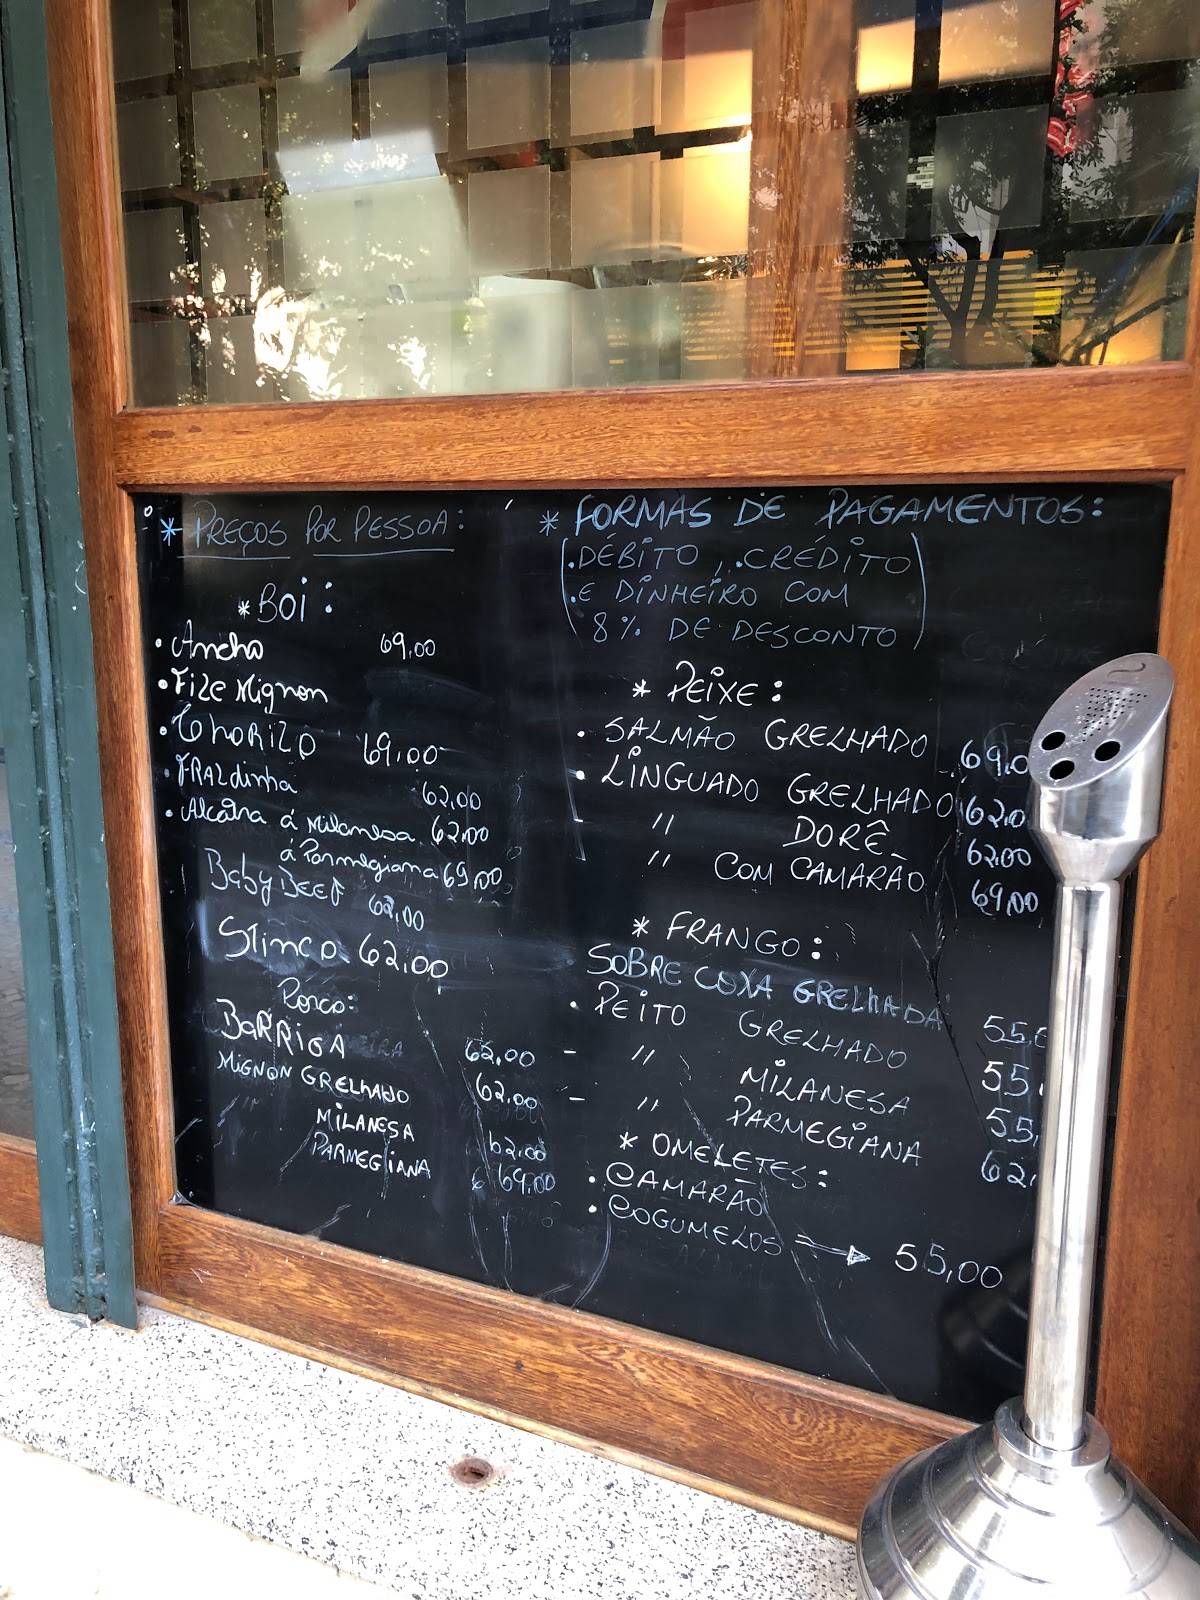 * PREÇOS POR PESSOA:
* BOI:
• Ancho 69,00
• File Mignon
• Chorizo 69,00
• FRALdinha 62,00
• Alcatra á Milanesa 62,00
á Parmegiana 69,00
Baby BEEF 62,00
STinco 62,00
Porco:
BARRIGA 62,00
MIGNON GRELHADO 62,00
MILANESA 62,00
PARMEGIANA 69,00
* FORMAS DE PAGAMENTOS:
(. DÉBITO, . CRÉDITO
. E DINHEIRO COM
8% DE DESCONTO)
* PEIXE:
• SALMÃO GRELHADO 69,0
• LINGUADO GRELHADO 62,0
" DORÊ 62,00
" COM CAMARÃO 69,00
* FRANGO:
SOBRE COXA GRELHADA 55,0
• PEITO GRELHADO 55,
- " MILANESA 55,
- " PARMEGIANA 62,
* OMELETES:
• CAMARÃO
• COGUMELOS → 55,00